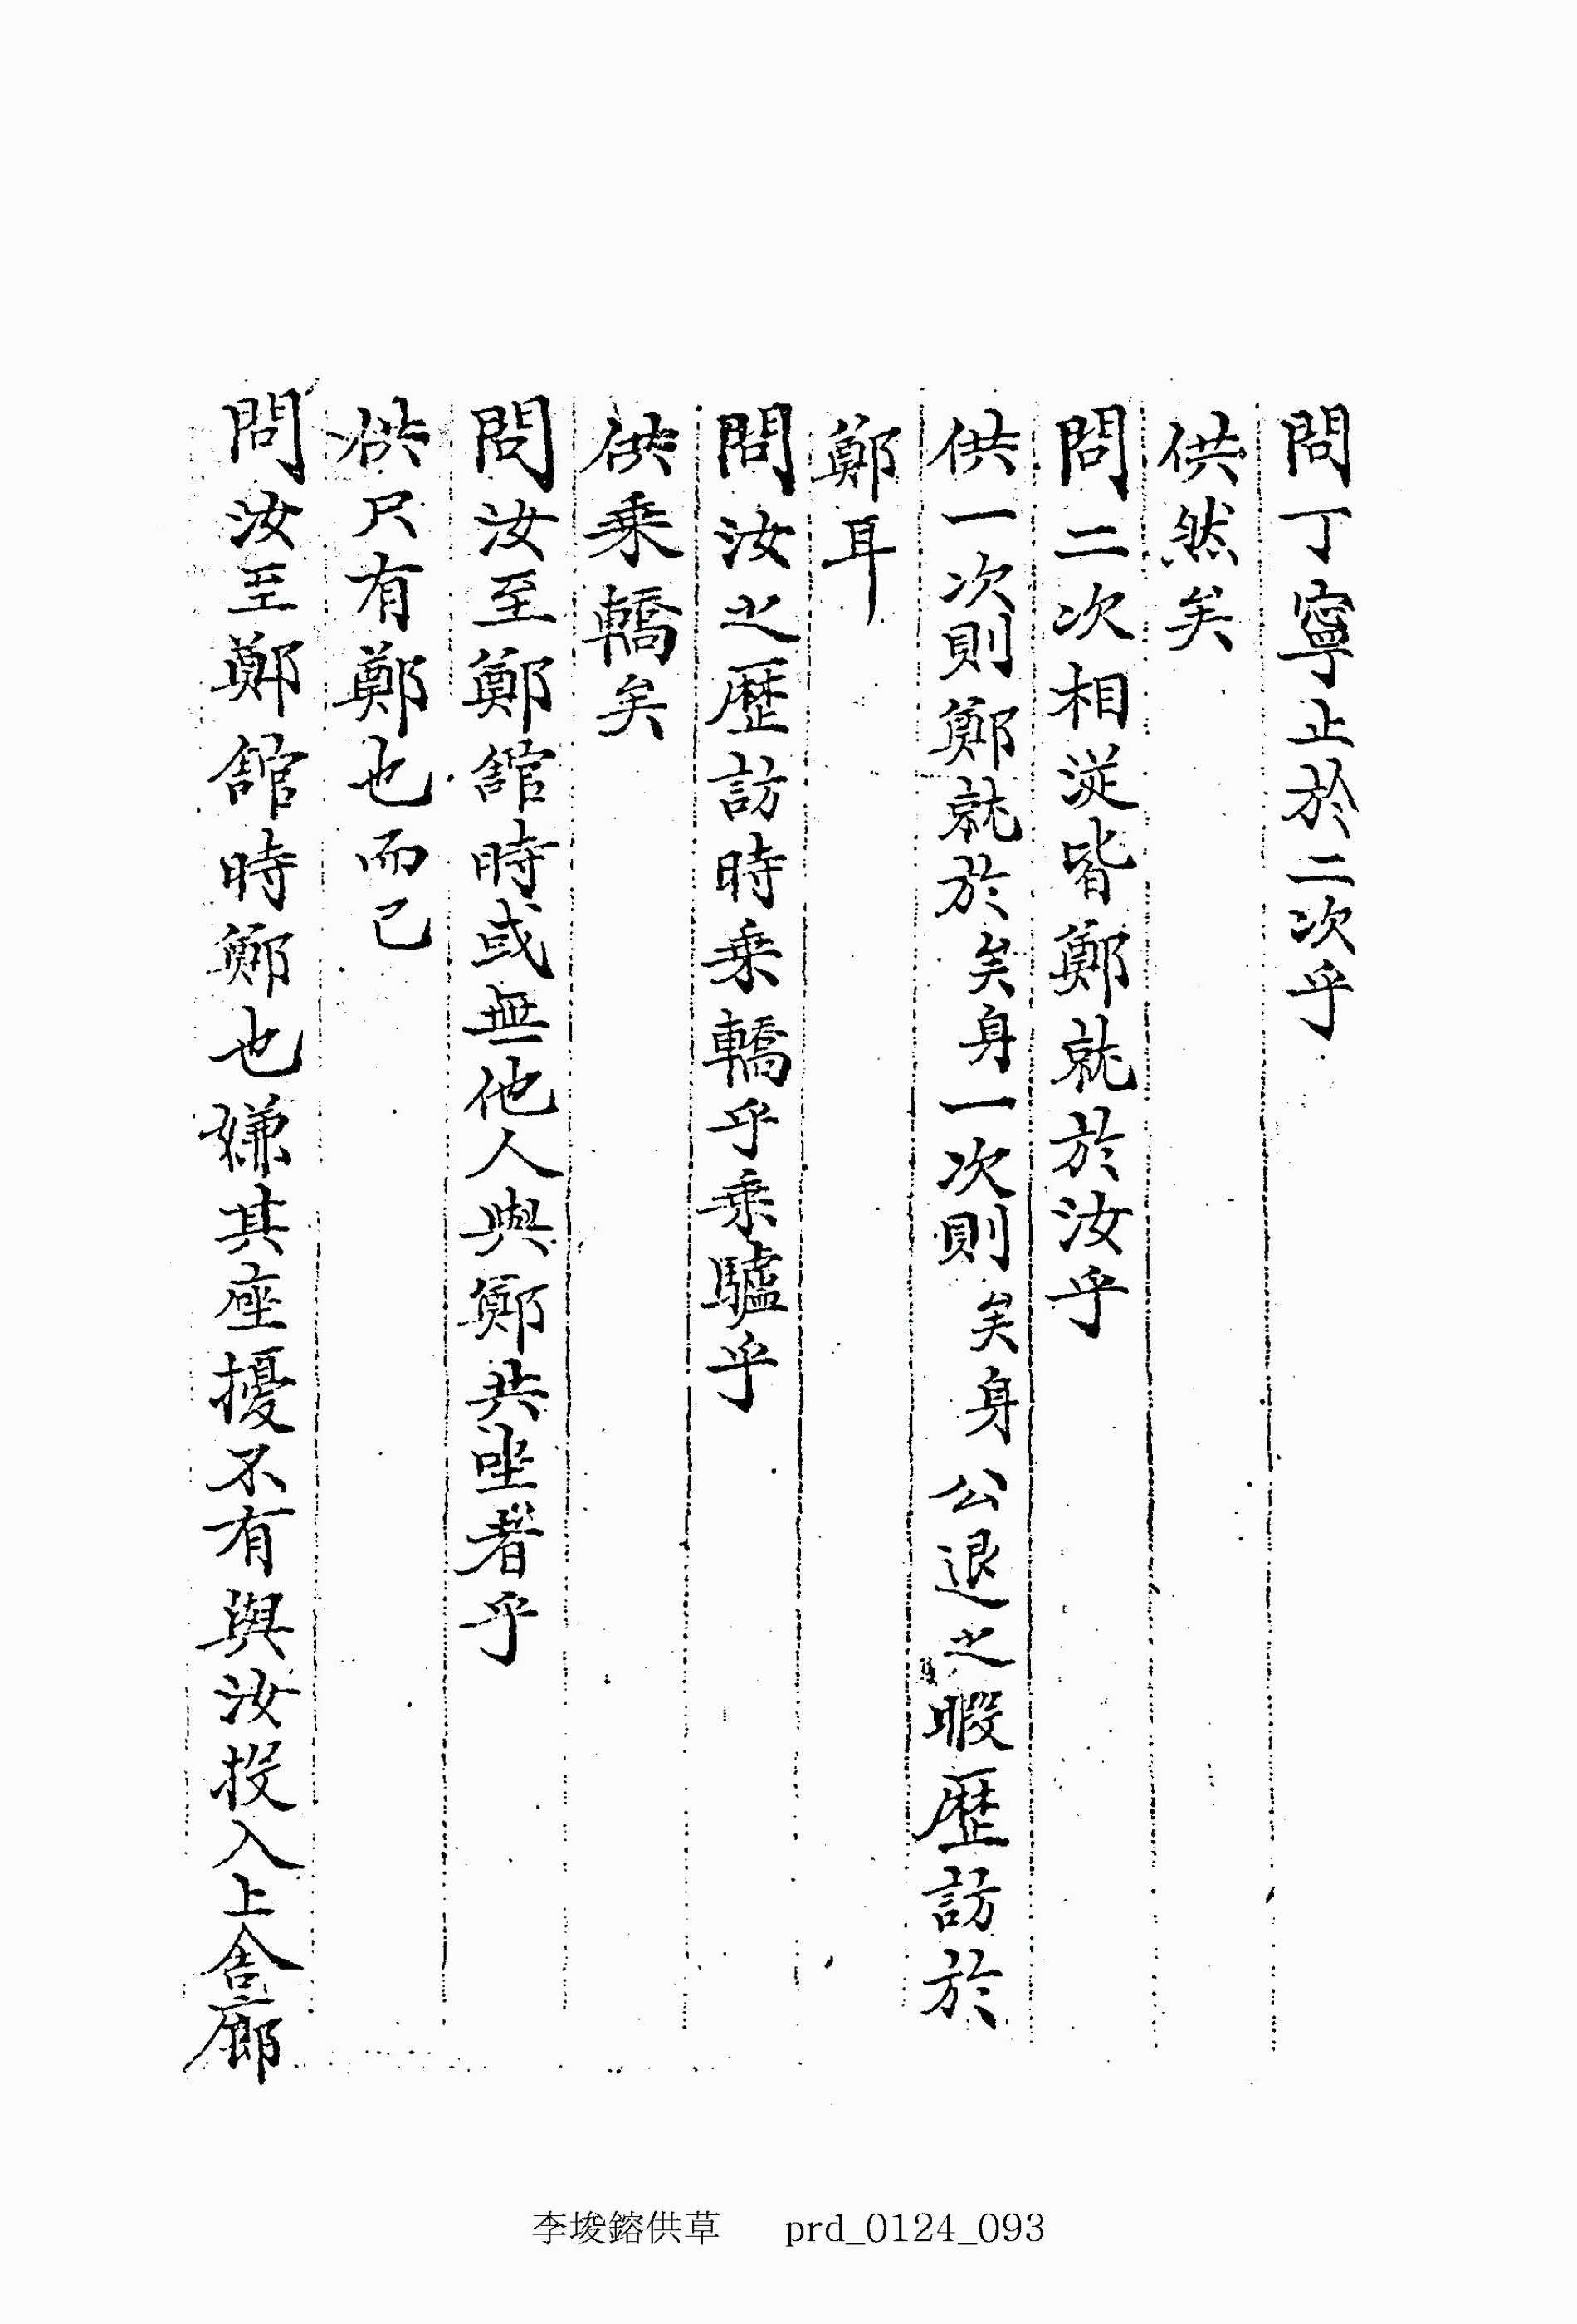 問丁寧止於二次乎
供然矣
問二次相從皆鄭就於汝乎
供一次則鄭就於矣身一次則矣身公退之暇歷訪於
鄭耳
問汝之歷訪時乘轎乎乘驢乎
供乘轎矣
問汝至鄭舘時或無他人與鄭共坐者乎
供只有鄭也而已
問汝至鄭舘時鄭也嫌其座擾不有與汝投入上舍廊
李埈鎔供草 prd_0124_093